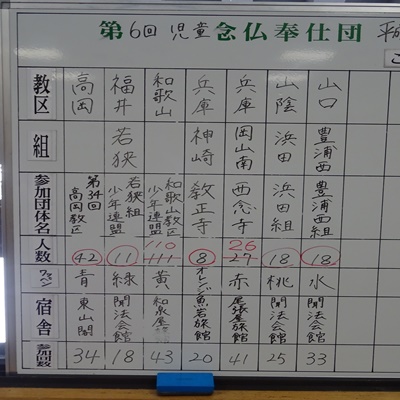 第6回 児童念仏奉仕団 平
教区 高岡 福井 和歌山 兵庫 兵庫 山陰 山口
組 若狭 神崎 岡山南 浜田 豊浦西
参加団体名 第34回高岡教区 若狭組少年連盟 和歌山教区少年連盟 教正寺 西念寺 浜田組 豊浦西組
人数 42 11 110 111 8 26 27 18 18
青 緑 黄 オレンジ 赤 桃 水
宿舎 東山閣 聞法会館 和泉屋旅館 魚岩旅館 尾張屋旅館 聞法会館 聞法会館
参加回数 34 18 43 20 41 25 33